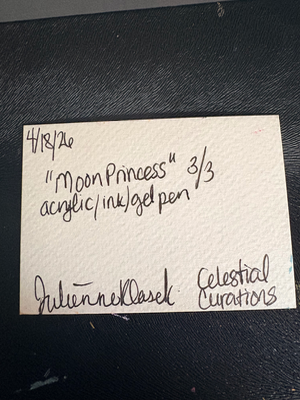 4/18/26
"Moon Princess" 3/3
acrylic/ink/gel pen
Julienne Klasek
Celestial
Curations